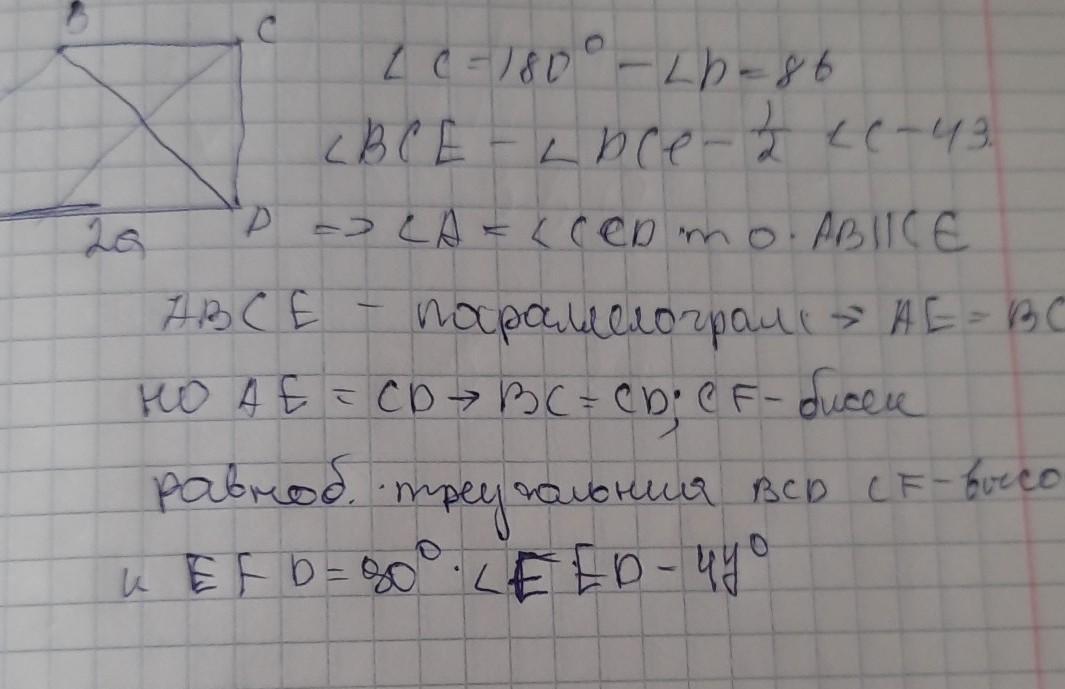 B C
∠C = 180° - ∠D = 86
∠BCE - ∠DCE - 1/2 ∠C - 43
2a D => ∠A = ∠CED т о. AB||CE
ABCE - параллелограмм → AE = BC
но AE = CD → BC = CD; CF - бисек
равноб. треугольника BCD CF - высо
и EFD = 90°. ∠EED - 44°